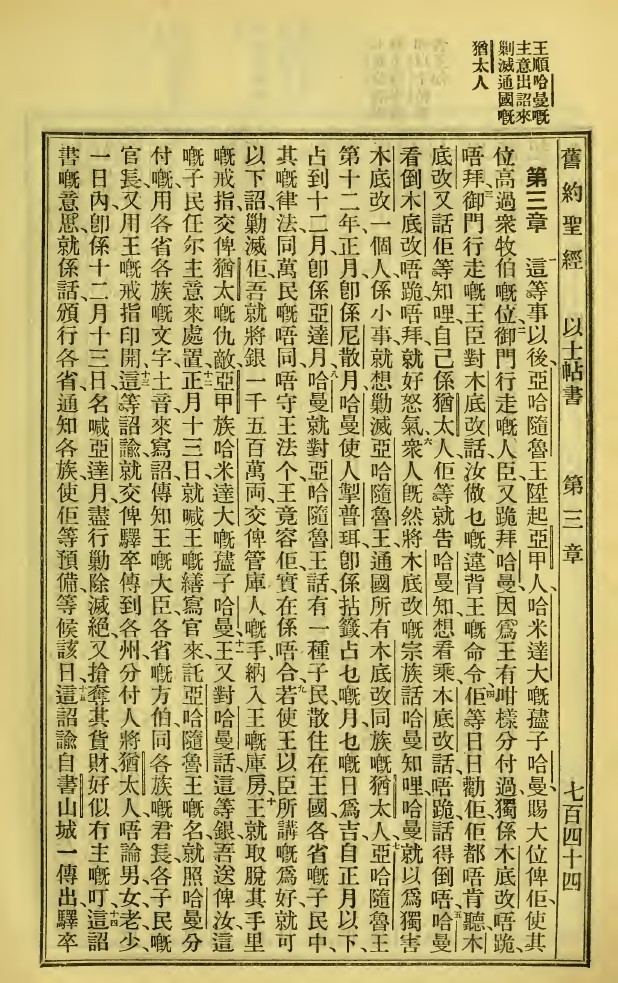 王順哈曼嘅
主意出詔來
剿滅通國嘅
猶太人
舊約聖經 以士帖書 第三章 七百四十四
第三章 一這等事以後、亞哈隨魯王陞起亞甲人、哈米達大嘅孻子哈曼、賜大位俾佢、使其
位高過衆牧伯嘅位、二御門行走嘅人臣、又跪拜哈曼、因爲王有咁樣分付過、獨係木底改唔跪、
唔拜、三御門行走嘅王臣、對木底改話、汝做乜嘅違背王嘅命令、四佢等日日勸佢、佢都唔肯聽木
底改又話佢等知哩自己係猶太人、佢等就告哈曼知、想看乘木底改話唔跪、話得倒唔、五哈曼
看倒木底改唔跪唔拜、就好怒氣、六衆人既然將木底改嘅宗族、話哈曼知哩、哈曼就以爲獨害
木底改一個人、係小事、就想勦滅亞哈隨魯王通國所有木底改同族嘅猶太人、七亞哈隨魯王
第十二年正月、卽係尼散月、哈曼使人掣普珥、卽係拈籤、占乜嘅月乜嘅日爲吉、自正月以下、
占到十二月、卽係亞達月、八哈曼就對亞哈隨魯王話、有一種子民、散住在王國各省嘅子民中、
其嘅律法、同萬民嘅唔同、唔守王法、个王竟容佢、實在係唔合、九若使王以臣所講嘅爲好、就可
以下詔勦滅佢、吾就將銀一千五百萬両、交俾管庫人嘅手、納入王嘅庫房、十王就取脫其手里
嘅戒指、交俾猶太嘅仇敵、亞甲族哈米達大嘅孻子哈曼、十一王又對哈曼話、這等銀吾送俾汝、這
嘅子民任尔主意來處置、十二正月十三日、就喊王嘅繕寫官來、託亞哈隨魯王嘅名、就照哈曼分
付嘅、用各省各族嘅文字土音來寫詔、傳知王嘅大臣、各省嘅方伯、同各族嘅君長、各子民嘅
官長、又用王嘅戒指印開、十三這等詔諭、就交俾驛卒、傳到各州、分付人將猶太人、唔論男女老少、
一日內、卽係十二月十三日、名喊亞達月、盡行勦除滅絕、又搶奪其貨財、好似冇主嘅叮、十四這詔
書嘅意思、就係話、頒行各省、通知各族、使佢等預備等候該日、十五這詔諭、自書山城一傳出、驛卒